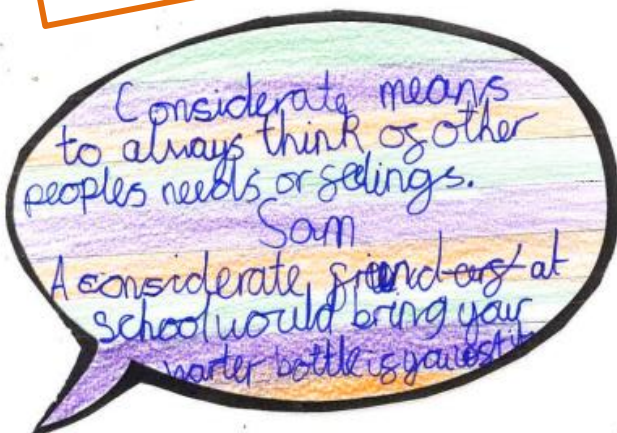 Considerate means
to always think of other
peoples needs or feelings.
Sam
A considerate friend at
school would bring your
warter bottle if you